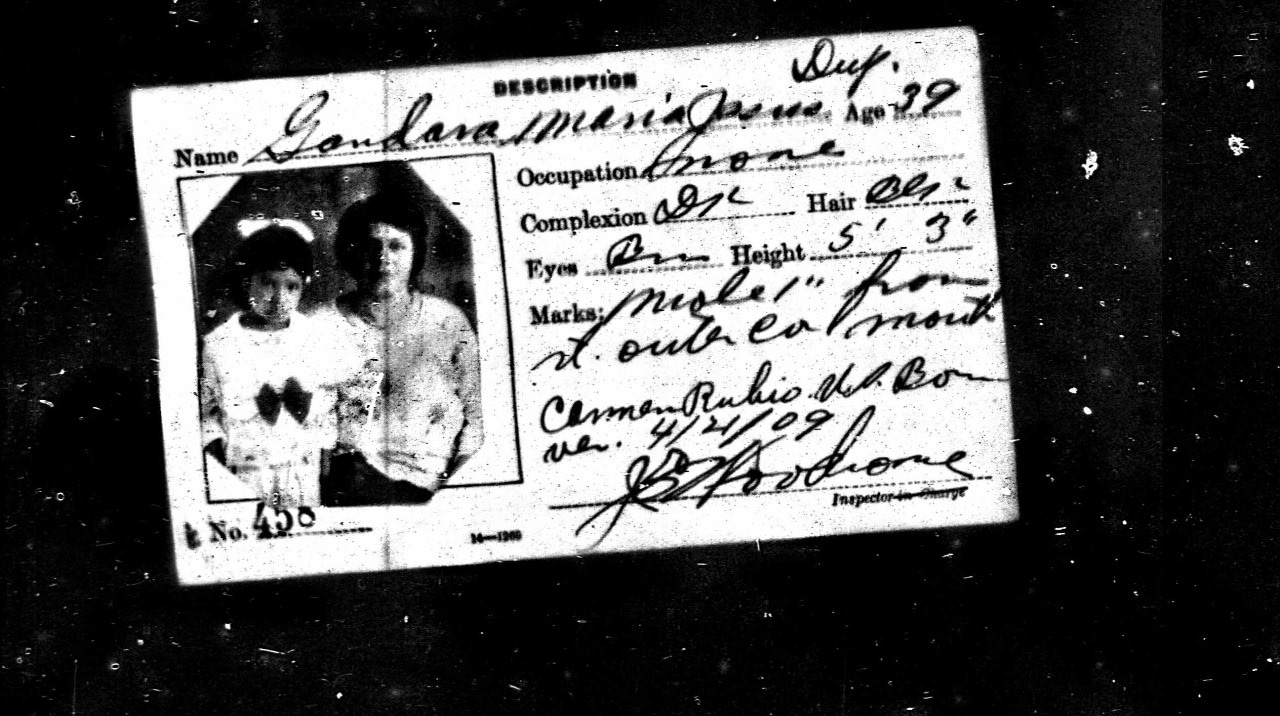 DESCRIPTION Dup.
Name Gandara, Maria Jesus Age 39
Occupation none
Complexion Dk Hair Blk
Eyes Brn Height 5' 3"
Marks: Mole 1" from
rt. outer cor mouth
Carmen Rubio U.S. Born
ver. 4/21/09
Inspector in Charge
No. 458
14—1260